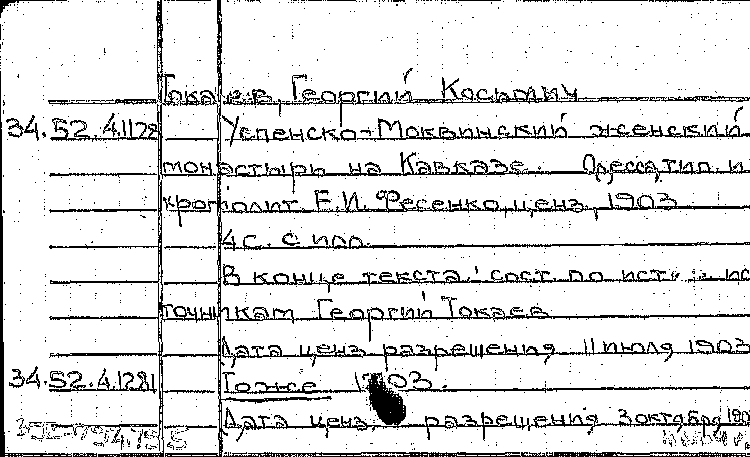 Токаев, Георгий Косьмич
34.52.4.1128 Успенско-Моквинский женский
монастырь на Кавказе. Одесса, тип. и
хромолит. Е.И. Фесенко, ценз. 1903
4 с. с илл.
В конце текста: сост. по ист. ис
точникам Георгий Токаев
Дата ценз. разрешения 11 июля 1903
34.52.4.1281 То же 1903.
Дата ценз. разрешения 3 октября 190